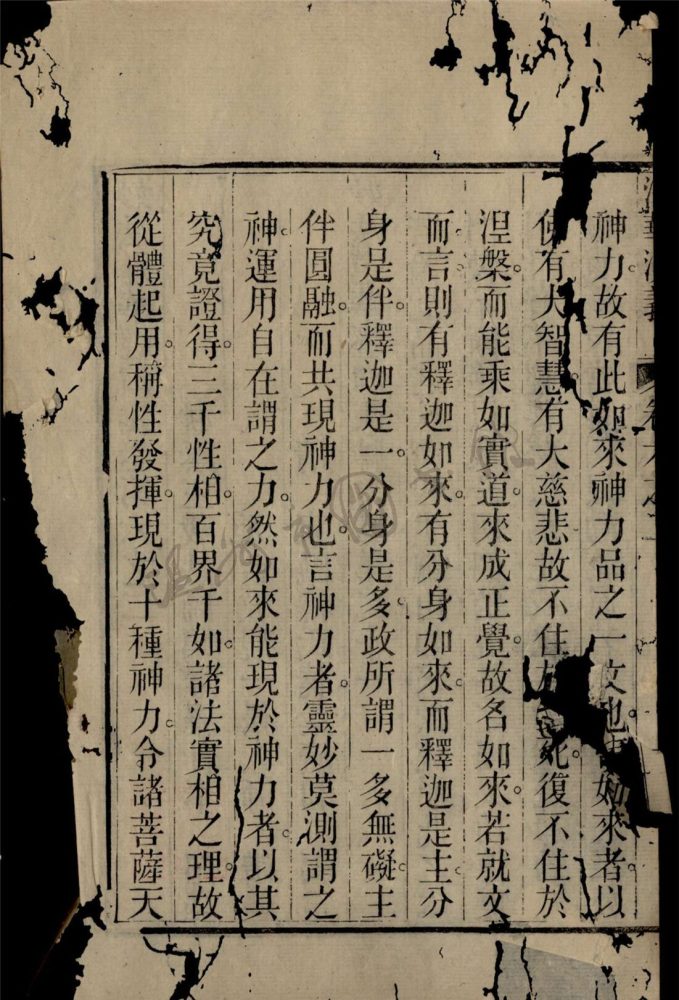 神力故有此如來神力品之一文也如來者以
佛有大智慧有大慈悲故不住死復不住於
涅槃而能乘如實道來成正覺故名如來若就文
而言則有釋迦如來有分身如來而釋迦是主分
身是伴釋迦是一分身是多政所謂一多無礙主
伴圓融而共現神力也言神力者靈妙莫測謂之
神運用自在謂之力然如來能現於神力者以其
究竟證得三千性相百界千如諸法實相之理故
從體起用稱性發揮現於十種神力令諸菩薩天